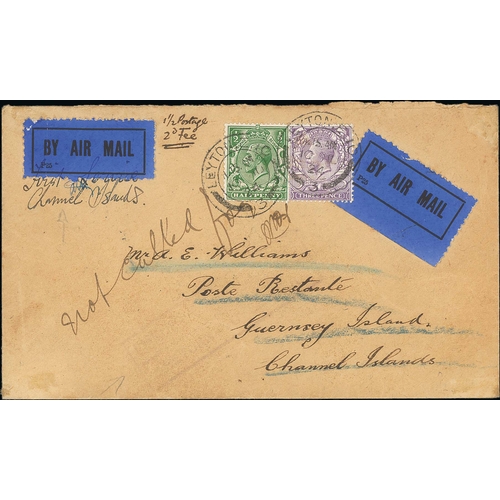 1½ Postage
2ᴰ Fee
BY AIR MAIL
Channel Islands.
LEYTON
HALFPENNY
LEYTON
THREEPENCE
BY AIR MAIL
not called for
Mr A. E. Williams
Poste Restante
Guernsey Island.
Channel Islands